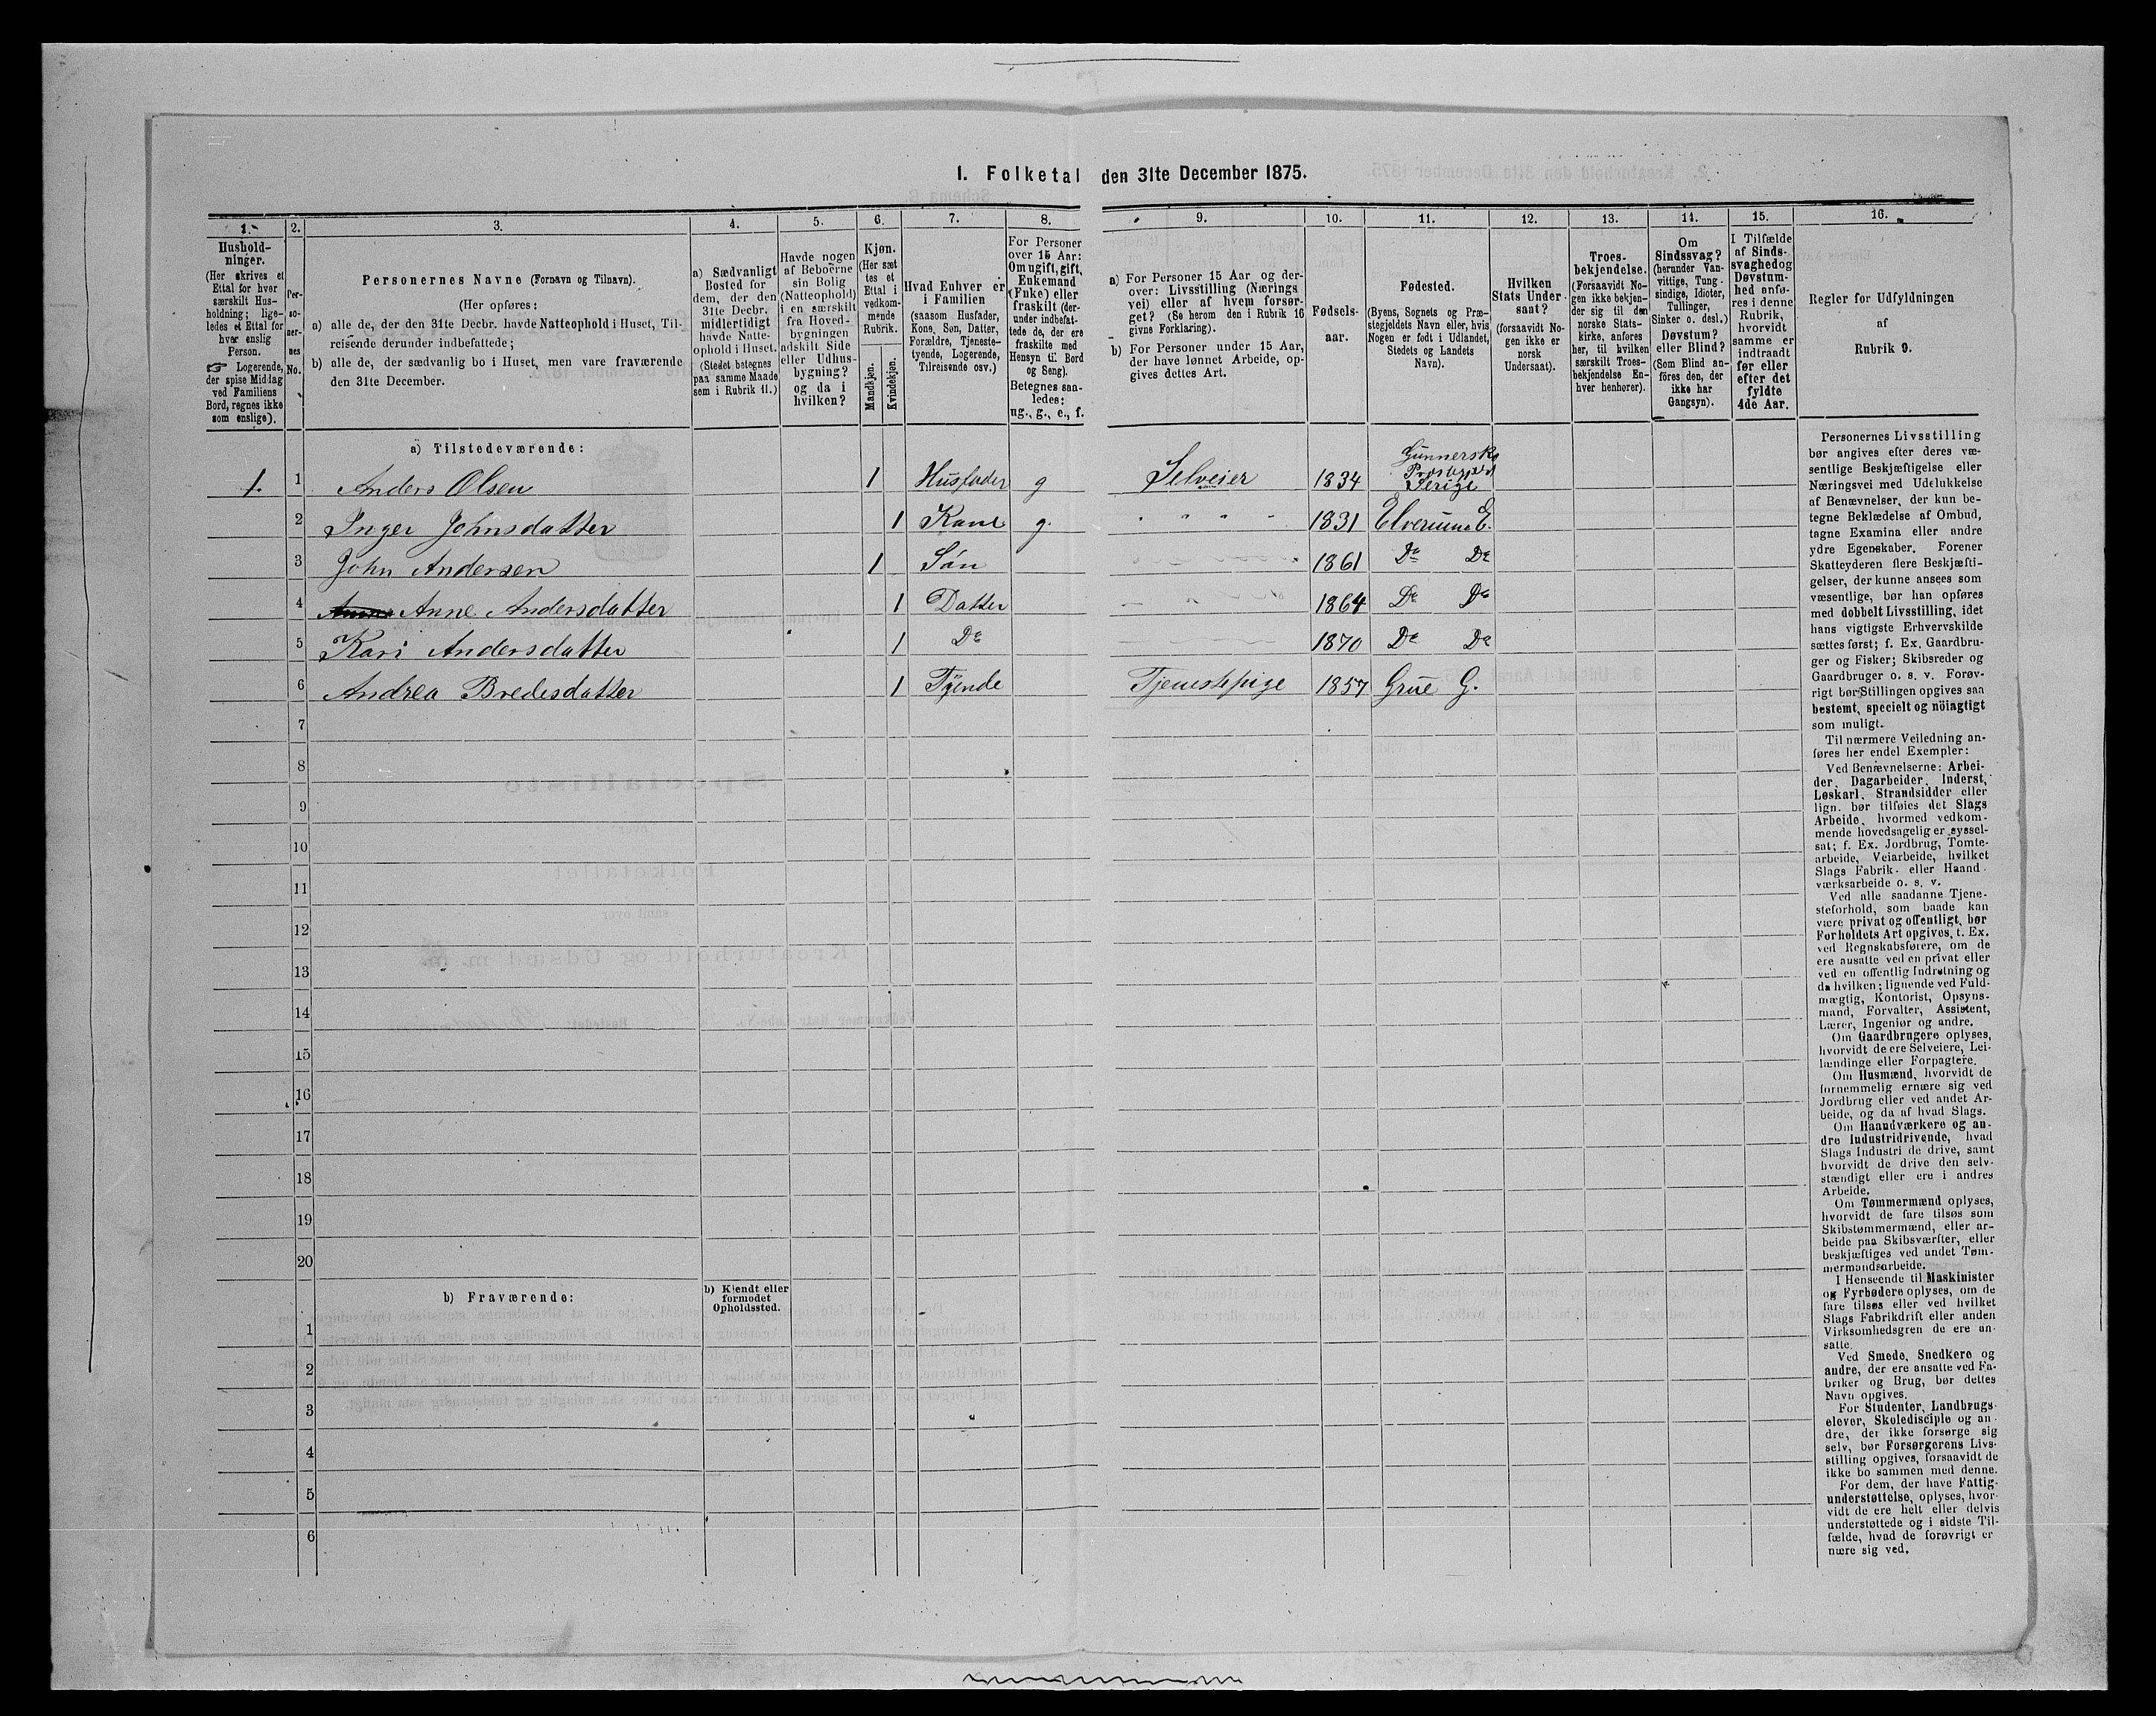 1. Folketal den 31te December 1875.
1. 2. 3. 4. 5. 6. 7. 8. 9. 10. 11. 12. 13. 14. 15. 16.
Hushold-
ninger.
(Her skrives et
Ettal for hver
særskilt Hus-
holdning; lige-
ledes et Ettal for
hver enslig
Person.
☞ Logerende,
der spise Middag
ved Familiens
Bord, regnes ikke
som enslige).
Per-
so-
ner-
nes
No.
Personernes Navne (Fornavn og Tilnavn).
(Her opføres:
a) alle de, der den 31te Decbr. havde Natteophold i Huset, Til-
reisende derunder indbefattede;
b) alle de, der sædvanlig bo i Huset, men vare fraværende
den 31te December.
a) Sædvanligt
Bosted for
dem, der den
31te Decbr.
midlertidigt
havde Natte-
ophold i Huset.
(Stedet betegnes
paa samme Maade
som i Rubrik 11.)
Havde nogen
af Beboerne
sin Bolig
(Natteophold)
i en særskilt
fra Hoved-
bygningen
adskilt Side
eller Udhus-
bygning?
og da i
hvilken?
Kjøn.
(Her sæt
tes et
Ettal i
vedkom-
mende
Rubrik.
Mandkjøn.
Kvindekjøn.
Hvad Enhver er
i Familien
(saasom Husfader,
Kone, Søn, Datter,
Forældre, Tjeneste-
tyende, Logerende,
Tilreisende osv.)
For Personer
over 15 Aar:
Om ugift, gift,
Enkemand
(Enke) eller
fraskilt (der-
under indbefat-
tede de, der ere
fraskilte med
Hensyn til Bord
og Seng).
Betegnes saa-
ledes:
ug., g., e., f.
a) For Personer 15 Aar og der-
over: Livsstilling (Nærings
vei) eller af hvem forsør-
get? (Se herom den i Rubrik 16
givne Forklaring).
b) For Personer under 15 Aar,
der have lønnet Arbeide, op-
gives dettes Art.
Fødsels-
aar.
Fødested.
(Byens, Sognets og Præ-
stegjeldets Navn eller, hvis
Nogen er født i Udlandet,
Stedets og Landets
Navn).
Hvilken
Stats Under-
saat?
(forsaavidt No-
gen ikke er
norsk
Undersaat).
Troes-
bekjendelse.
(Forsaavidt No-
gen ikke bekjen-
der sig til den
norske Stats-
kirke, anføres
her, til hvilken
særskilt Troes-
bekjendelse En-
hver henhører).
Om
Sindssvag?
(herunder Van-
vittige, Tung-
sindige, Idioter,
Tullinger,
Sinker o. desl.)
Døvstum?
eller Blind?
(Som Blind an-
føres den, der
ikke har
Gangsyn).
I Tilfælde
af Sinds-
svaghed og
Døvstum-
hed anfø-
res i denne
Rubrik,
hvorvidt
samme er
indtraadt
før eller
efter det
fyldte
4de Aar.
Regler for Udfyldningen
af
Rubrik 9.
a) Tilstedeværende:
1. 1 Anders Olsen 1 Husfader g Selveier 1834 Gunnersko Prostegjeld Serige
2 Inger Johnsdatter 1 Kone g. " " " " 1831 Elverum E.
3 John Andersen 1 Søn 1861 Do Do
4 Anne Andersdatter 1 Datter 1864 Do Do
5 Kari Andersdatter 1 Do 1870 Do Do
6 Andrea Bredesdatter 1 Tyende Tjenestepige 1857 Grue G.
7
8
9
10
11
12
13
14
15
16
17
18
19
20
b) Fraværende:
b) Kjendt eller
formodet
Opholdssted.
1
2
3
4
5
6
Personernes Livsstilling
bør angives efter deres væ-
sentlige Beskjæftigelse eller
Næringsvei med Udelukkelse
af Benævnelser, der kun be-
tegne Beklædelse af Ombud,
tagne Examina eller andre
ydre Egenskaber. Forener
Skatteyderen flere Beskjæfti-
gelser, der kunne ansees som
væsentlige, bør han opføres
med dobbelt Livsstilling, idet
hans vigtigste Erhvervskilde
sættes først; f. Ex. Gaardbru-
ger og Fisker; Skibsreder og
Gaardbruger o. s. v. Forøv-
rigt bør Stillingen opgives saa
bestemt, specielt og nöiagtigt
som muligt.
Til nærmere Veiledning an-
føres her endel Exempler:
Ved Benævnelserne: Arbei-
der, Dagarbeider, Inderst,
Løskarl, Strandsidder eller
lign. bør tilføies det Slags
Arbeide, hvormed vedkom-
mende hovedsagelig er syssel-
sat; f. Ex. Jordbrug, Tomte-
arbeide, Veiarbeide, hvilket
Slags Fabrik- eller Haand-
værksarbeide o. s. v.
Ved alle saadanne Tjene-
steforhold, som baade kan
være privat og offentligt, bør
Forholdets Art opgives, t. Ex.
ved Regnskabsførere, om de
ere ansatte ved en privat eller
ved en offentlig Indretning og
da hvilken; lignende ved Fuld-
mægtig, Kontorist, Opsyns-
mand, Forvalter, Assistent,
Lærer, Ingeniør og andre.
Om Gaardbrugere oplyses,
hvorvidt de ere Selveiere, Lei-
lændinge eller Forpagtere.
Om Husmænd, hvorvidt de
fornemmelig ernære sig ved
Jordbrug eller ved andet Ar-
beide, og da af hvad Slags.
Om Haandværkere og an-
dre Industridrivende, hvad
Slags Industri de drive, samt
hvorvidt de drive den selv-
stændigt eller ere i andres
Arbeide.
Om Tømmermænd oplyses,
hvorvidt de fare tilsøs som
Skibstømmermænd, eller ar-
beide paa Skibsværfter, eller
beskjæftiges ved andet Tøm-
mermandsarbeide.
I Henseende til Maskinister
og Fyrbødere oplyses, om de
fare tilsøs eller ved hvilket
Slags Fabrikdrift eller anden
Virksomhedsgren de ere an-
satte.
Ved Smede, Snedkere og
andre, der ere ansatte ved Fa-
briker og Brug, bør dettes
Navn opgives.
For Studenter, Landbrugs-
elever, Skoledisciple og an-
dre, der ikke forsørge sig
selv, bør Forsørgerens Livs-
stilling opgives, forsaavidt de
ikke bo sammen med denne.
For dem, der have Fattig-
understøttelse, oplyses, hvor-
vidt de ere helt eller delvis
understøttede og i sidste Til-
fælde, hvad de forøvrigt er
nære sig ved.